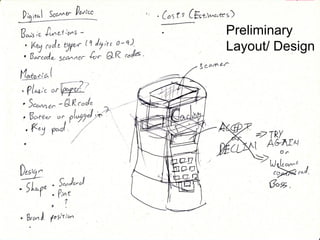 Digital Scanner Device
Basic functions -
• Key code typer (9 digits 0-9)
• Barcode scanner for QR codes.
Material
• Plasic or paper?
• Scanner - QR code
• Barter or plugged in?
• Key pad.
•
Design
• Shape • Standard
• Point
• ?
• Brand position
•
• Costs (Estimates)
•
Preliminary
Layout/ Design
scanner
ACCEPT
or
DECLINE
TRY
AGAIN
or
Welcome
Boss.